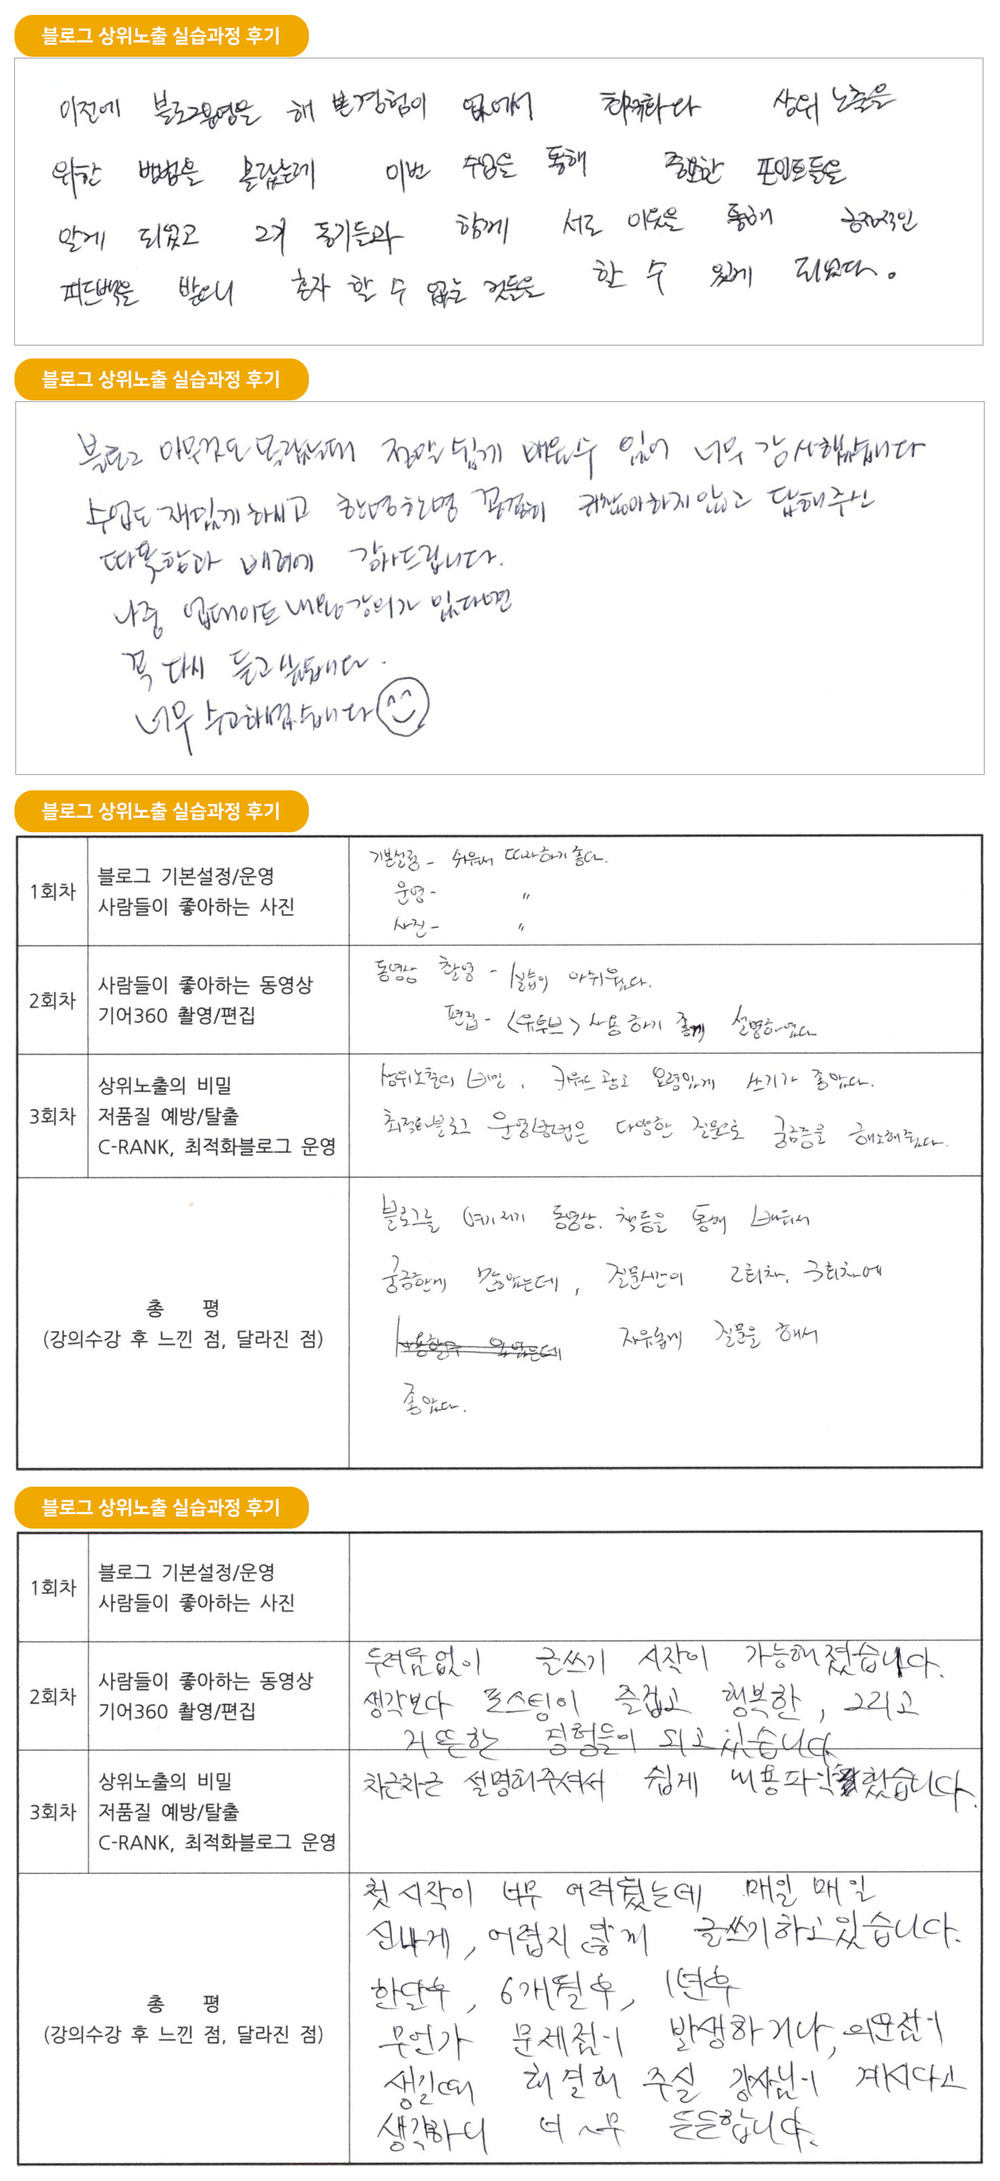 블로그 상위노출 실습과정 후기
이전에 블로그운영을 해 본경험이 없어서 최적화나 상위 노출을
위한 방법을 몰랐는데 이번 수업을 통해 중요한 포인트들을
알게 되었고 2기 동기들과 함께 서로 이웃을 통해 긍정적인
피드백을 받으니 혼자 할 수 없는 것들을 할 수 있게 되었다.
블로그 상위노출 실습과정 후기
블로그 아무것도 몰랐는데 정말 쉽게 배울수 있어 너무 감사했습니다
수업도 재밌게 하시고 한명한명 꼼꼼히 귀찮아하지 않고 답해주신
따뜻함과 배려에 감사드립니다.
나중 업데이트 내용강의가 있다면
꼭 다시 듣고싶습니다.
너무 수고하셨습니다
블로그 상위노출 실습과정 후기
1회차
블로그 기본설정/운영
사람들이 좋아하는 사진
기본설정 - 쉬워서 따라하기 좋다.
운영 - 〃
사진 - 〃
2회차
사람들이 좋아하는 동영상
기어360 촬영/편집
동영상 촬영 - 실습이 아쉬웠다.
편집 - <유튜브> 사용하기 좋게 설명하였다
3회차
상위노출의 비밀
저품질 예방/탈출
C-RANK, 최적화블로그 운영
상위노출의 비밀, 키워드 광고 요령있게 쓰기가 좋았다.
최적화블로그 운영방법은 다양한 질문으로 궁금증을 해소해주었다.
총 평
(강의수강 후 느낀 점, 달라진 점)
블로그를 여기저기 동영상, 책등을 통해 배워서
궁금한게 많았는데, 질문시간이 2회차, 3회차에
자유롭게 질문을 해서
좋았다.
블로그 상위노출 실습과정 후기
1회차
블로그 기본설정/운영
사람들이 좋아하는 사진
2회차
사람들이 좋아하는 동영상
기어360 촬영/편집
두려움없이 글쓰기 시작이 가능해졌습니다.
생각보다 포스팅이 즐겁고 행복한, 그리고
기쁜한 경험들이 되고 있습니다
3회차
상위노출의 비밀
저품질 예방/탈출
C-RANK, 최적화블로그 운영
차근차근 설명해주셔서 쉽게 내용파악했습니다.
총 평
(강의수강 후 느낀 점, 달라진 점)
첫 시작이 너무 어려웠는데 매일 매일
신나게, 어렵지 않게 글쓰기하고있습니다.
한달후, 6개월후, 1년후
무언가 문제점이 발생하거나, 의문점이
생길때 해결해 주실 강사님이 계시다고
생각하니 너~무 든든합니다.